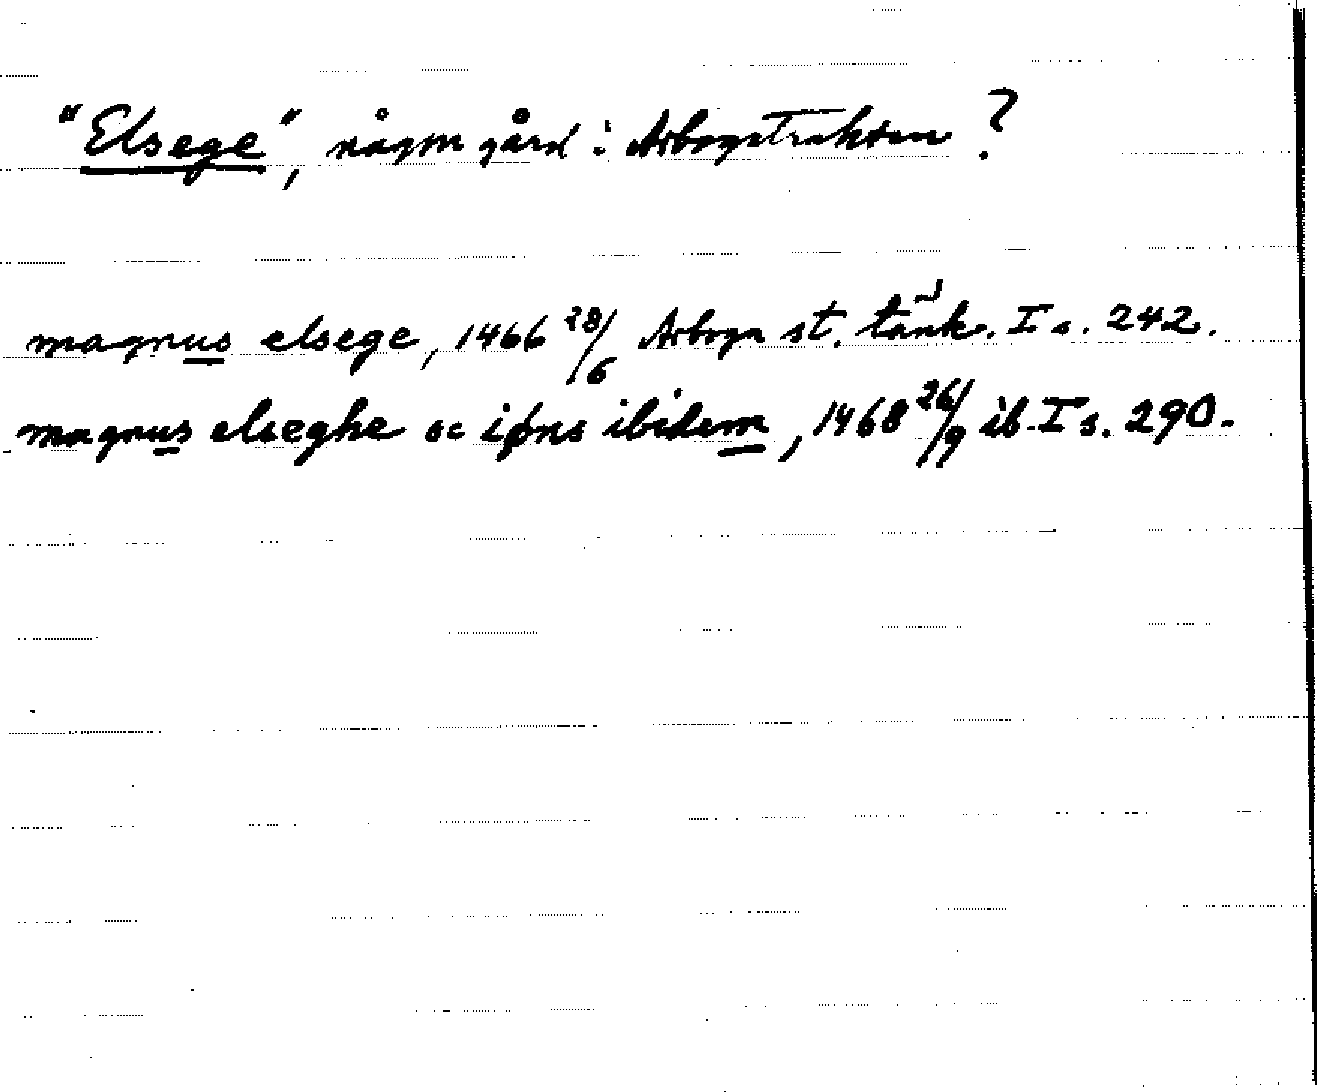 "Elsege", någon gård i Arbogatrakten?
magnus elsege, 1466 28/6 Arboga st. tänk. I s. 242.
magnus elseghe oc iøns ibidem, 1468 26/9 ib. I s. 290.